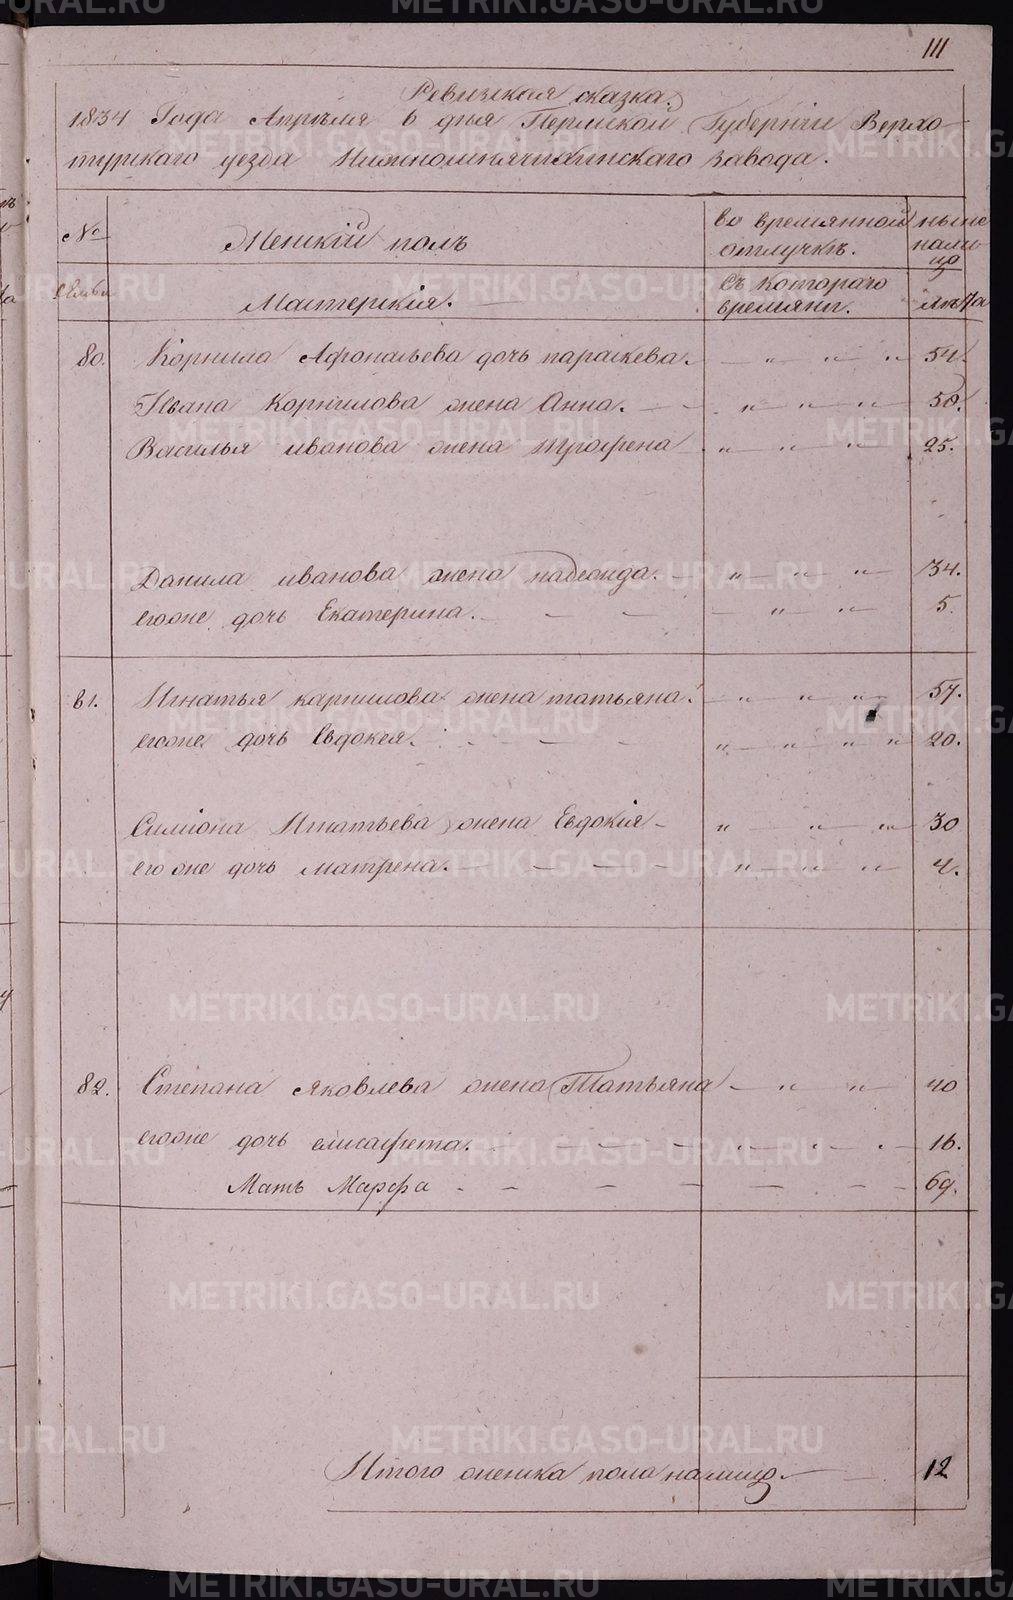 111
Ревизская сказка.
1834 Года Апреля 6 дня Пермской Губернiи Верхо-
турскаго уезда Нижносинячихинскаго завода.
№ Женскiй полъ во времянной отлучкѣ. ныне налицо
семьи Мастерскiя. Съ котораго времяни. лѣта
80. Корнила Афонасьева дочь параскева. — „ „ „ 54.
Ивана Корнилова жена Анна. — „ „ „ 50.
Василья иванова жена трофена „ „ „ 25.
Данила иванова жена надежда. — „ „ „ 34.
егоже дочь Екатерина. — — — — „ „ 5.
81. Игнатья карнилова жена татьяна. — „ „ „ 57.
егоже дочь Евдокея. — — „ „ „ „ 20.
Симiона Игнатьева жена Евдокiя — „ „ „ 30
его же дочь матрена. — — — — „ „ „ 4.
82. Степана Яковлева жена Татьяна — „ „ 40
егоже дочь елисафета. — — — — — — 16.
Мать Марфа — — — — — — — 69.
Итого женска пола налицо. — 12
METRIKI.GASO-URAL.RU